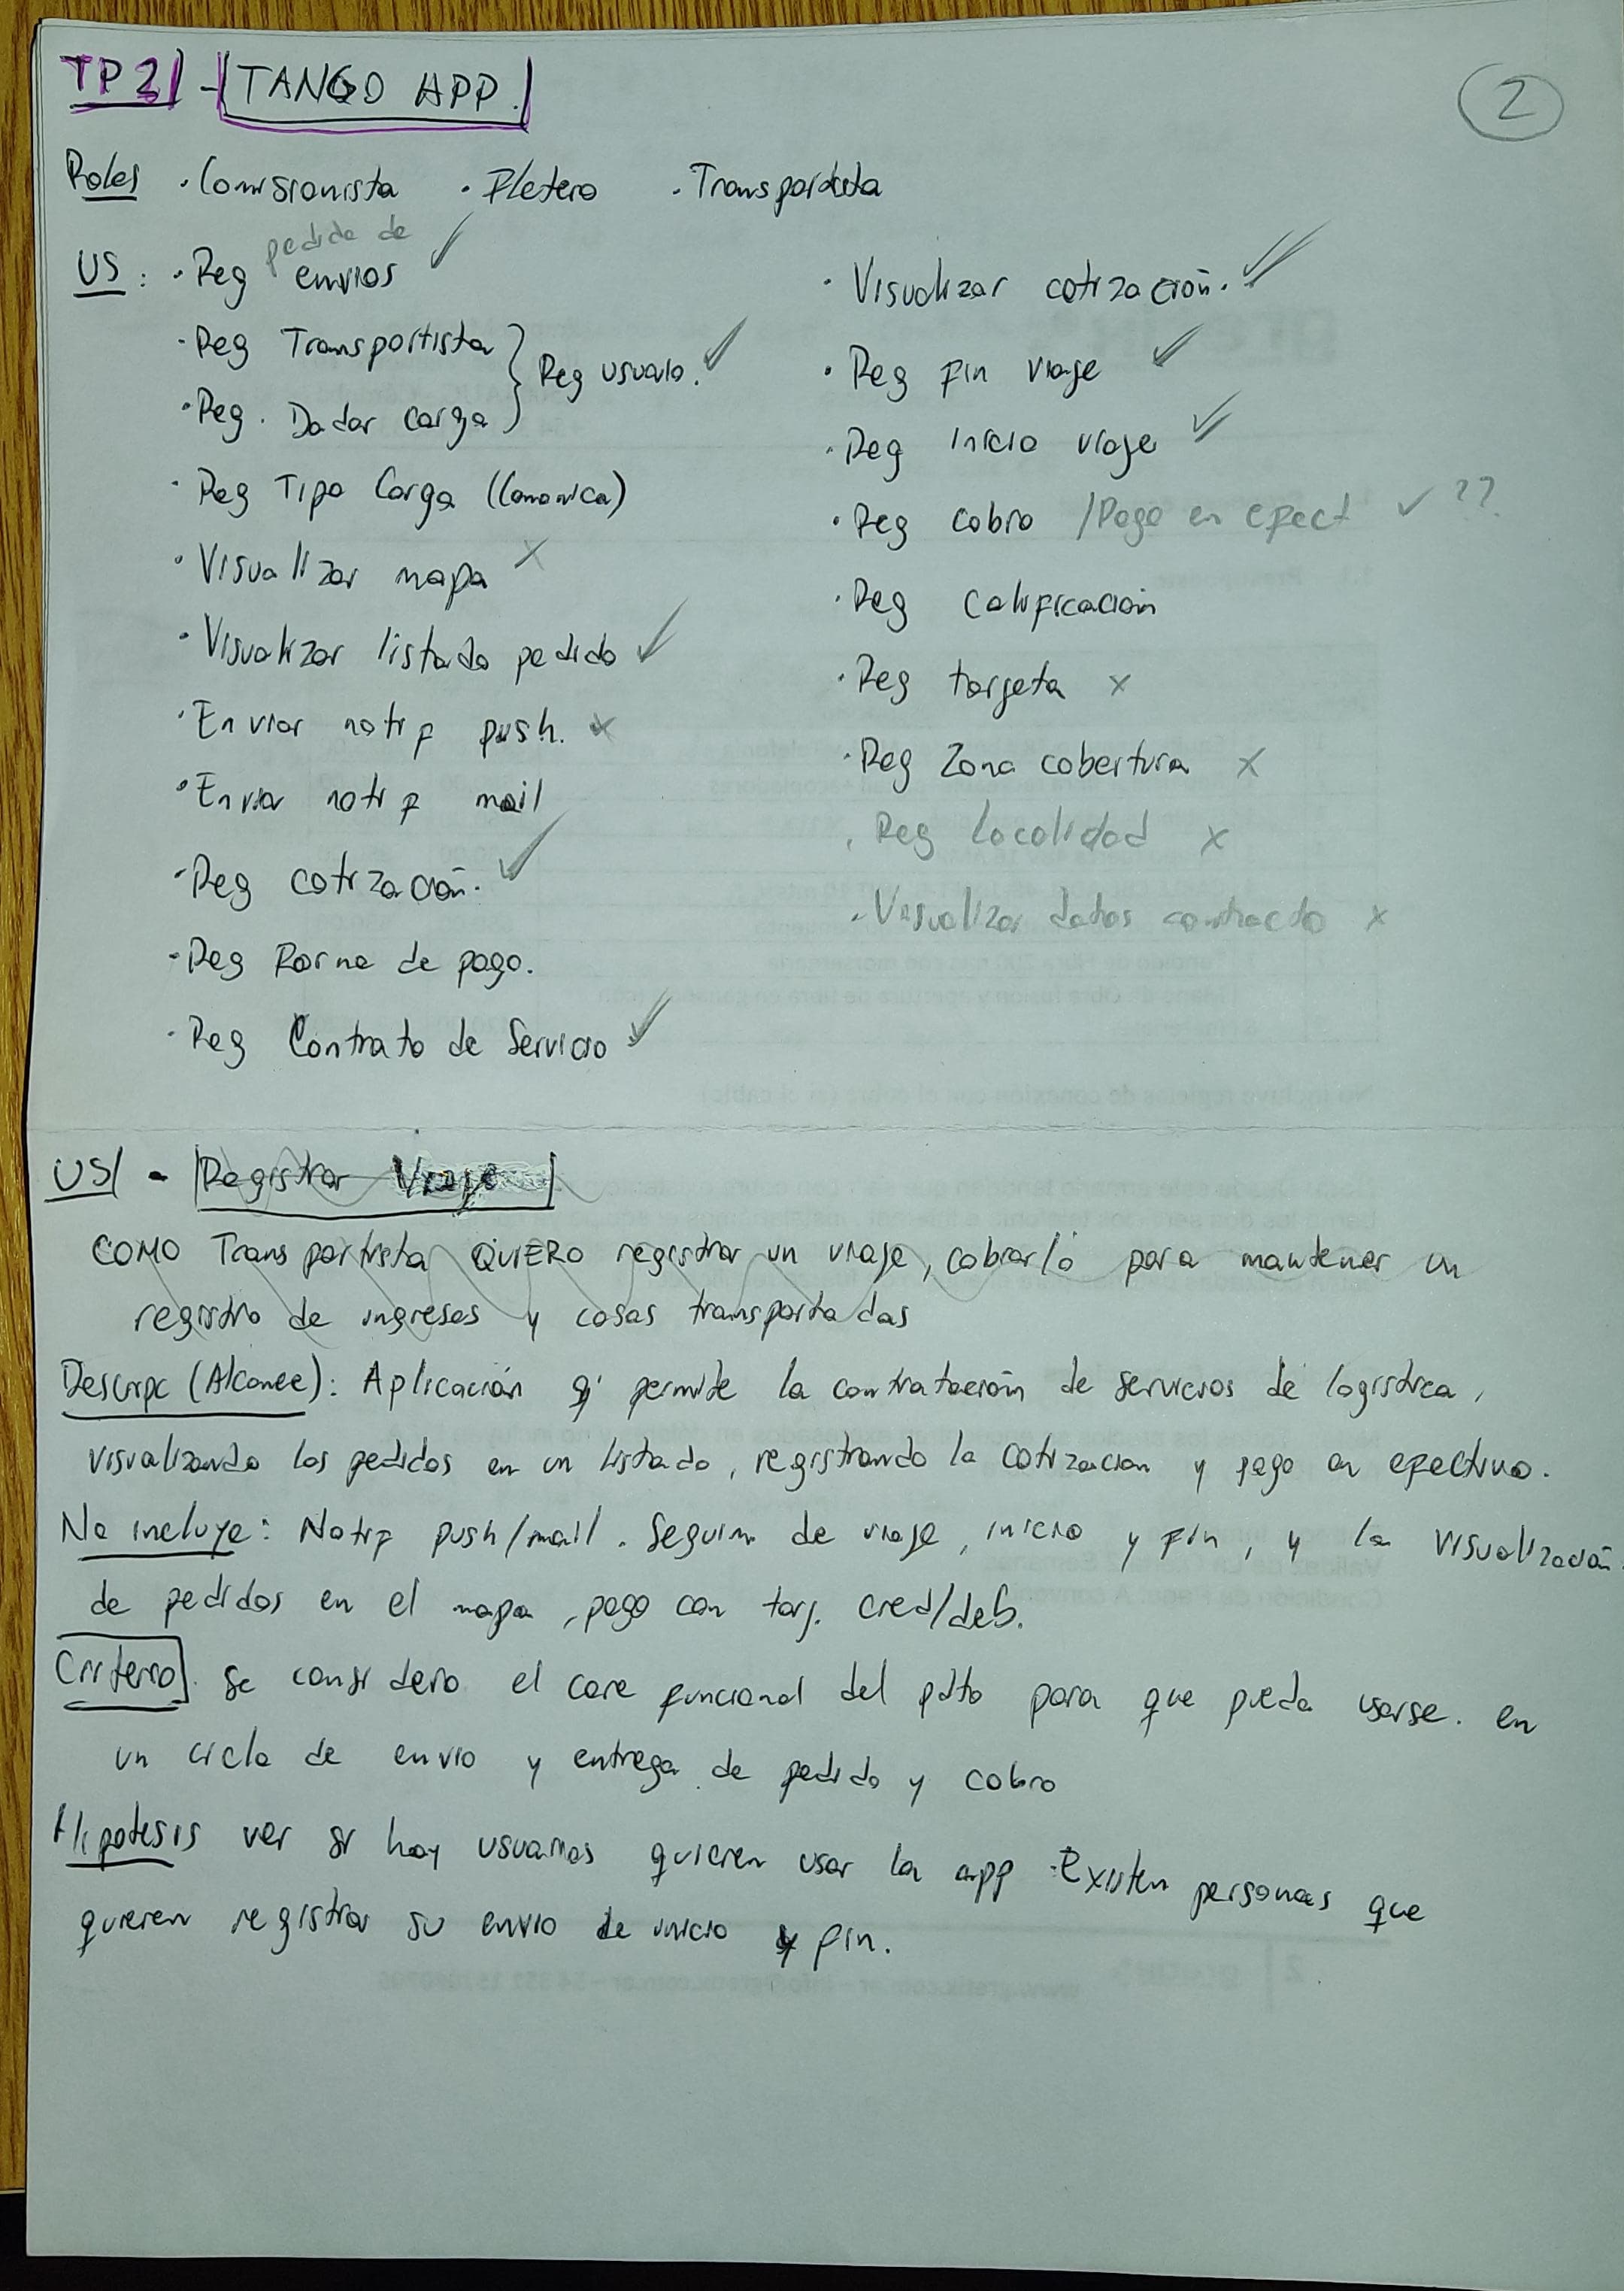 TP2 - TANGO APP.
2
Roles · Comisionista · Fletero · Transportista
US: · Reg pedido de envios ✓
· Reg Transportista
· Reg. Dador carga } Reg usuario. ✓
· Reg Tipo Carga (Canonica)
· Visualizar mapa x
· Visualizar listado pedido ✓
· Enviar notif push. x
· Enviar notif mail
· Reg cotización. ✓
· Reg Forma de pago.
· Reg Contrato de Servicio ✓
· Visualizar cotización. ✓
· Reg fin viaje ✓
· Reg inicio viaje ✓
· Reg cobro /Pago en efect ✓ ??
· Reg Calificación
· Reg targeta x
· Reg Zona cobertura x
· Reg Localidad x
· Visualizar datos contacto x
US - Registrar Viaje
COMO Transportista QUIERO registrar un viaje, cobrarlo para mantener un
registro de ingresos y cosas transportadas
Descripc (Alcance): Aplicación q' permite la contratación de servicios de logistica,
visualizando los pedidos en un listado, registrando la cotizacion y pago en efectivo.
No incluye: Notif push/mail. Seguim de viaje, inicio y fin, y la visualización
de pedidos en el mapa, pago con tarj. cred/deb.
Criterio. Se considero el core funcional del pdto para que pueda usarse. en
un ciclo de envio y entrega de pedido y cobro
Hipotesis ver si hay usuarios quieren usar la app. Existen personas que
quieren registrar su envio de inicio y fin.